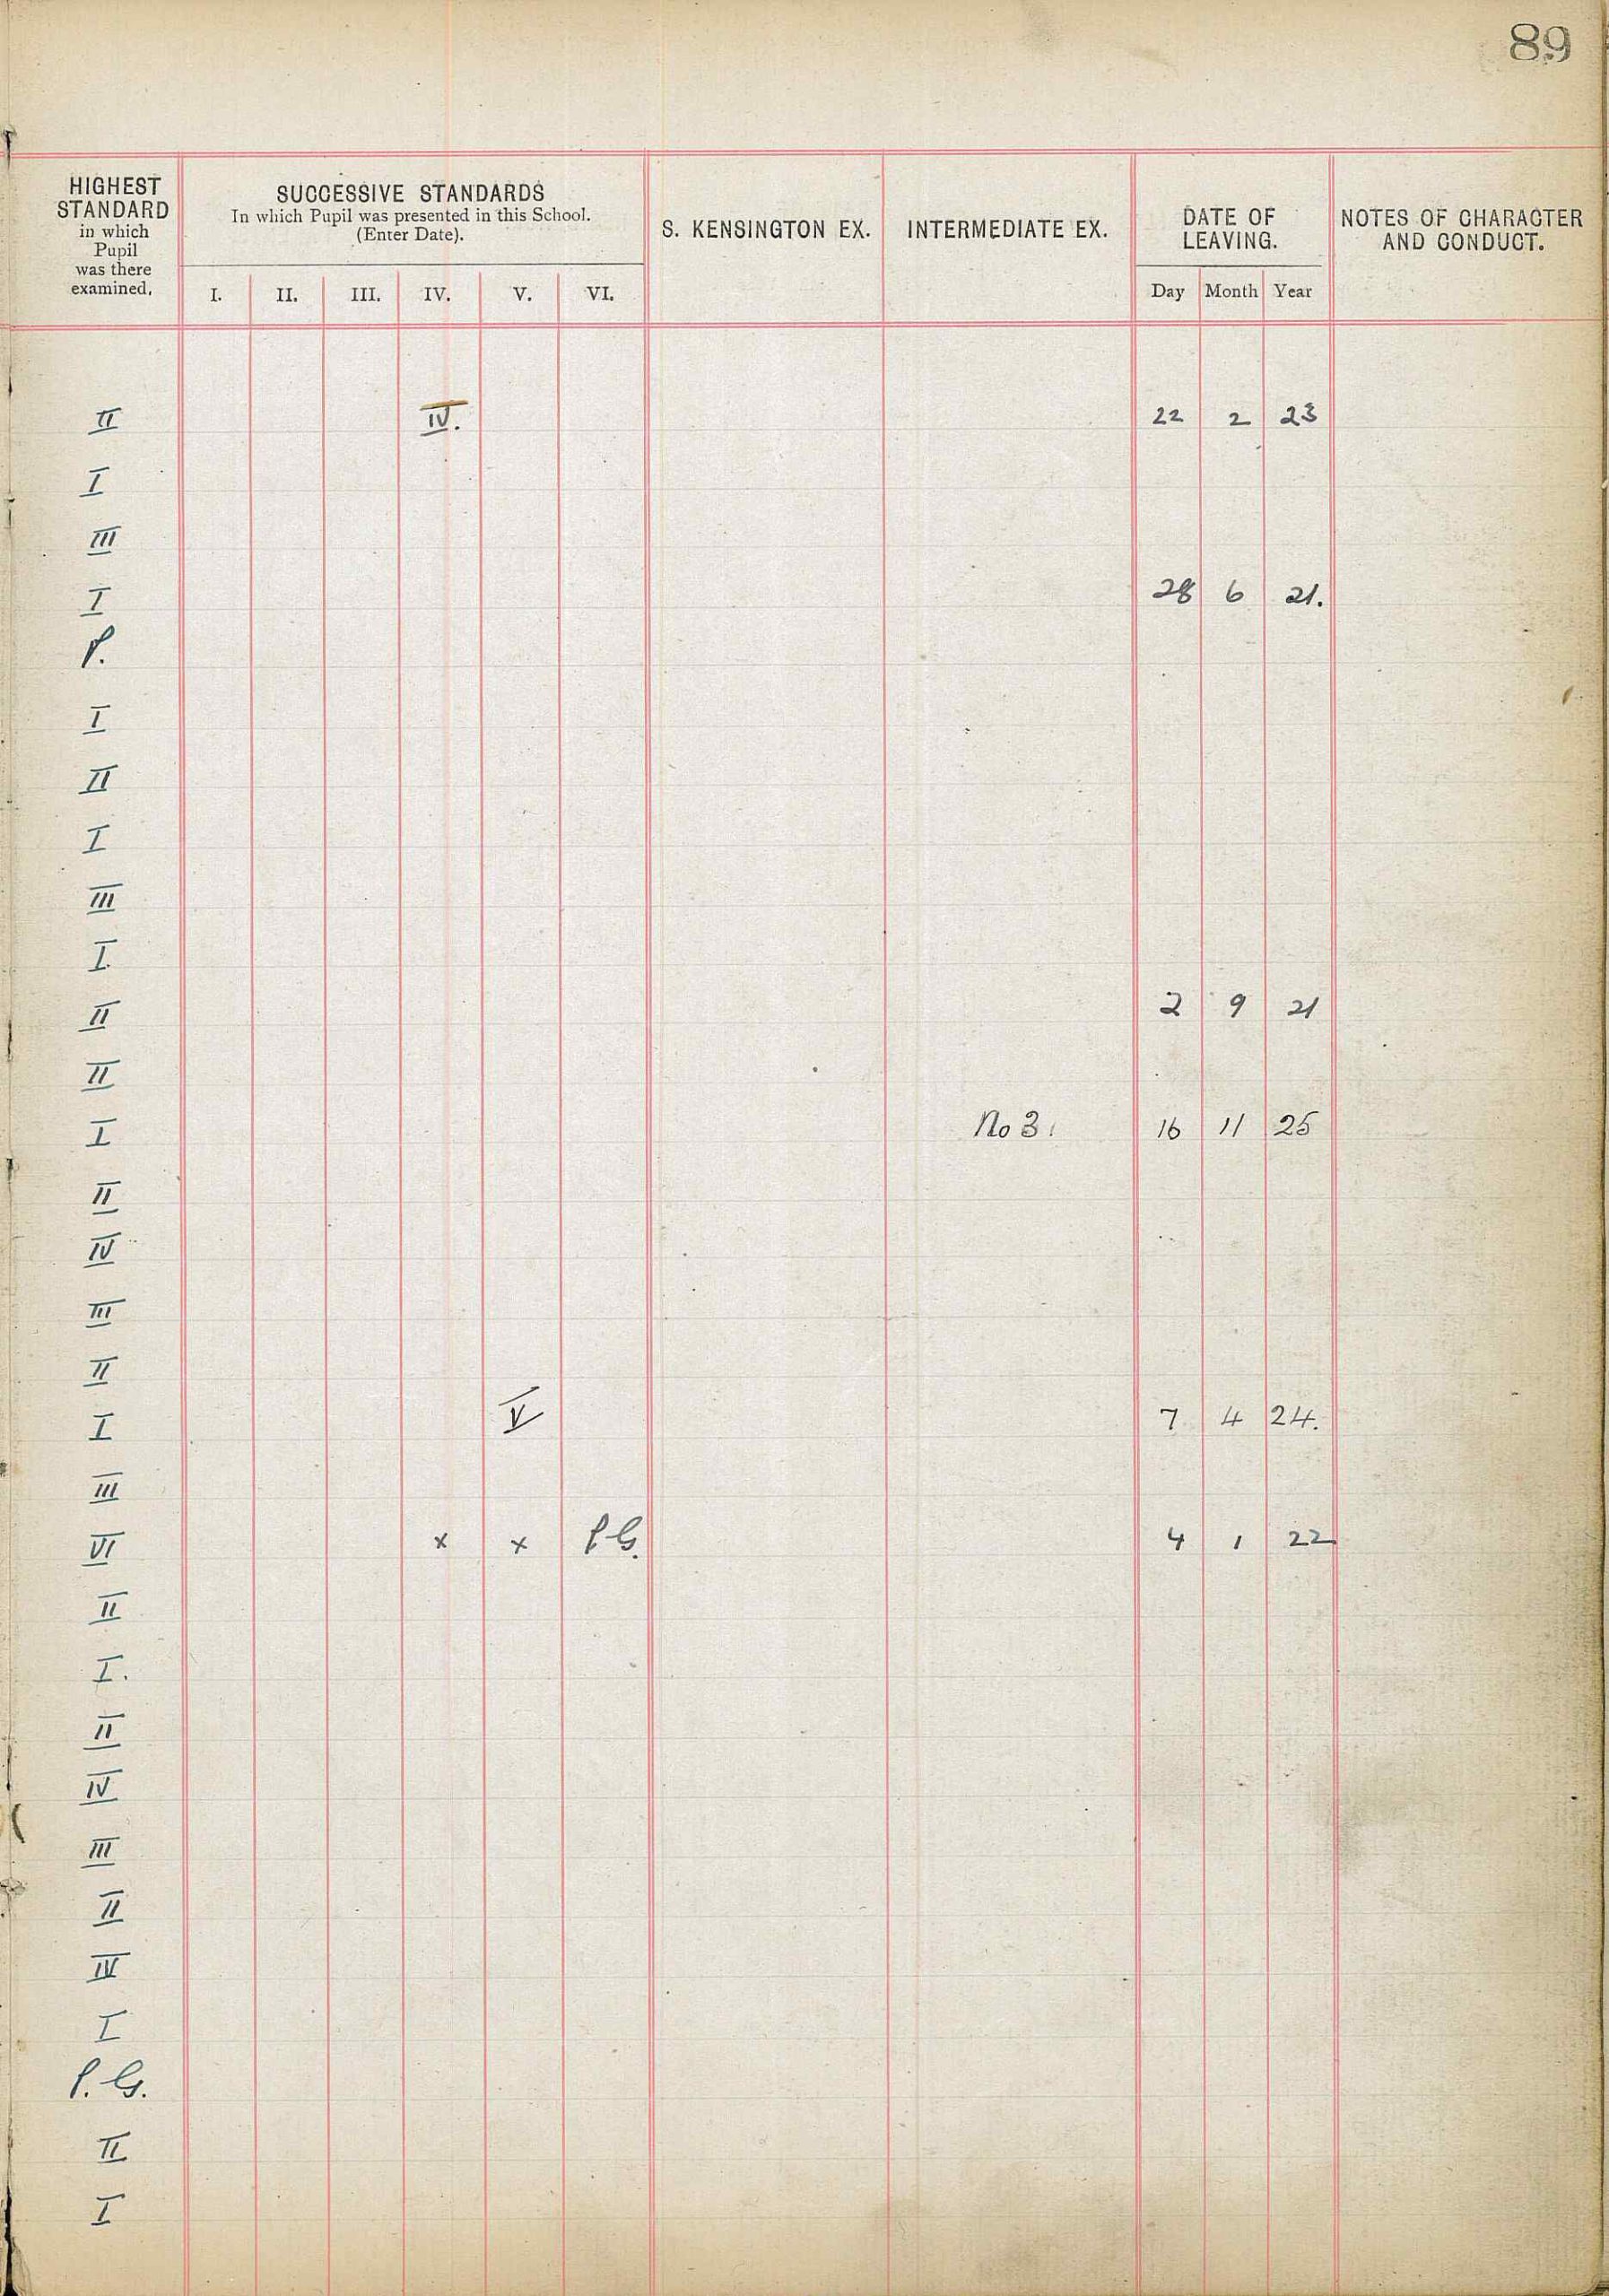 89
HIGHEST STANDARD in which Pupil was there examined.
SUCCESSIVE STANDARDS
In which Pupil was presented in this School.
(Enter Date).
I. II. III. IV. V. VI.
S. KENSINGTON EX.
INTERMEDIATE EX.
DATE OF LEAVING.
Day Month Year
NOTES OF CHARACTER AND CONDUCT.
II IV. 22 2 23
I
III
I 28 6 21.
P.
I
II
I
III
I
II 2 9 21
II
I No 3. 16 11 25
II
IV
III
II
I V 7 4 24.
III
VI x x P G. 4 1 22
II
I.
II
IV
III
II
IV
I
P. G.
II
I